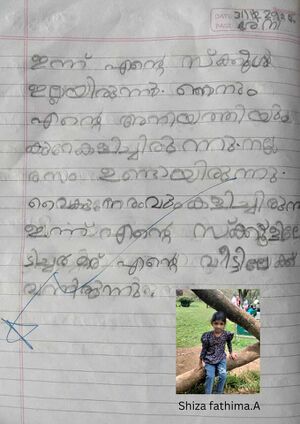 DATE
PAGE
ഇന്ന് എന്റെ സ്കൂൾ
ഇല്ലയിരുന്നു. ഞനും
എന്റെ അനിയത്തിയും
കുറേ കളിച്ചിരുന്നു. നല്ല
രസം ഉണ്ടായിരുന്നു.
വൈകുന്നേരംവരും കളിച്ചിരുന്നു
ഇന്ന് എന്റെ സ്കൂളിലെ
ടീച്ചർ എന്റെ വീട്ടിലേക്ക്
വന്നിരുന്നു.
Shiza fathima.A